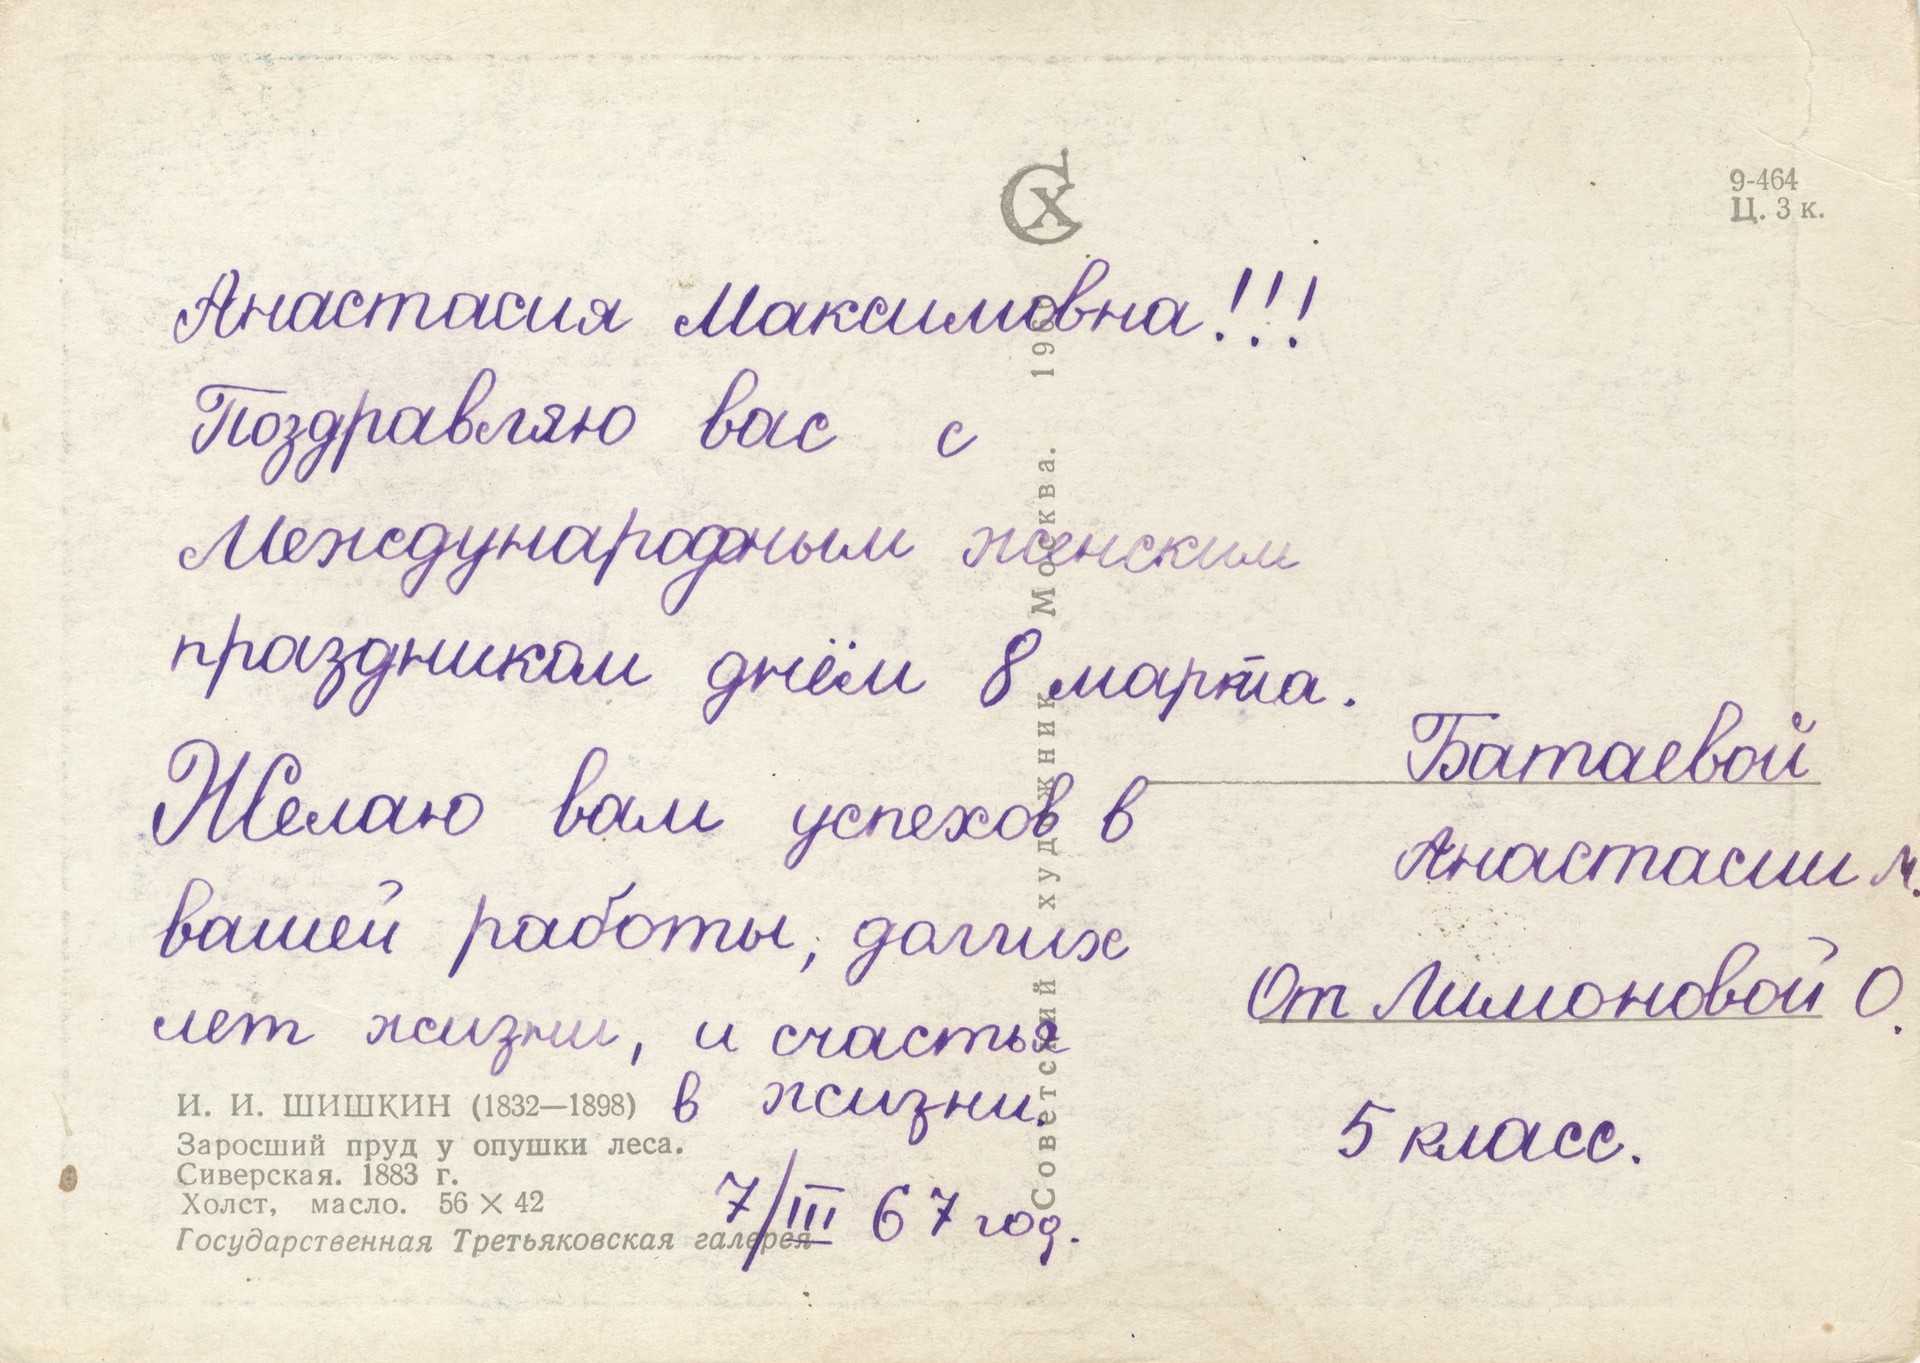 9-464
Ц. 3 к.
Анастасия Максимовна!!!
Поздравляю вас с
Международным женским
праздником днём 8 марта.
Желаю вам успехов в
вашей работы, долгих
лет жизни, и счастья
в жизни.
7/III 67 год.
Батаевой
Анастасии М.
От Лимоновой О.
5 класс.
И. И. ШИШКИН (1832—1898)
Заросший пруд у опушки леса.
Сиверская. 1883 г.
Холст, масло. 56 × 42
Государственная Третьяковская галерея
Советский художник Москва.
СХ